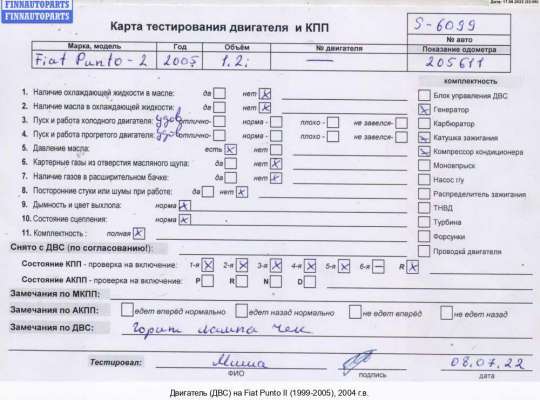 FINNAUTOPARTS
FINNAUTOPARTS
Дата: 17.08.2022
Карта тестирования двигателя и КПП
S-6099
№ авто
Марка, модель Год Объём № двигателя Показание одометра
Fiat Punto-2 2005 1,2i — 205611
комплектность
1. Наличие охлаждающей жидкости в масле: да нет X
2. Наличие масла в охлаждающей жидкости: да нет X
3. Пуск и работа холодного двигателя: удов отлично- норма - плохо - не завелся-
4. Пуск и работа прогретого двигателя: удов отлично- норма - плохо - не завелся-
5. Давление масла: есть X нет
6. Картерные газы из отверстия масляного щупа: да нет X
7. Наличие газов в расширительном бачке: да нет X
8. Посторонние стуки или шумы при работе: да нет X
9. Дымность и цвет выхлопа: норма X
10. Состояние сцепления: норма X
11. Комплектность : полная X
Блок управления ДВС
Генератор
Карбюратор
Катушка зажигания
Компрессор кондиционера
Моновпрыск
Насос г/у
Распределитель зажигания
ТНВД
Турбина
Форсунки
Проводка двигателя
Снято с ДВС (по согласованию!):
Состояние КПП - проверка на включение: 1-я X 2-я X 3-я X 4-я X 5-я X 6-я — R X
Состояние АКПП - проверка на включение: P R N D
Замечания по МКПП:
Замечания по АКПП: едет вперёд нормально едет назад нормально не едет вперёд не едет назад
Замечания по ДВС: Горит лампа Чек
Тестировал: Миша 08.07.22
ФИО подпись дата
Двигатель (ДВС) на Fiat Punto II (1999-2005), 2004 г.в.